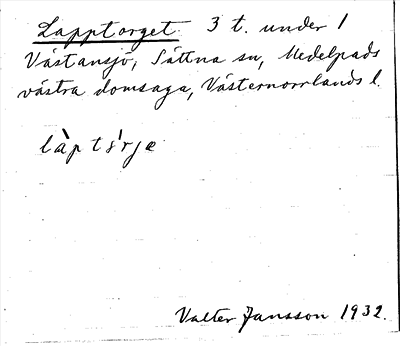 Lapptorget 3 t. under 1
Västansjö, Sättna sn, Medelpads
västra domsaga, Västernorrlands l.
Valter Jansson 1932.